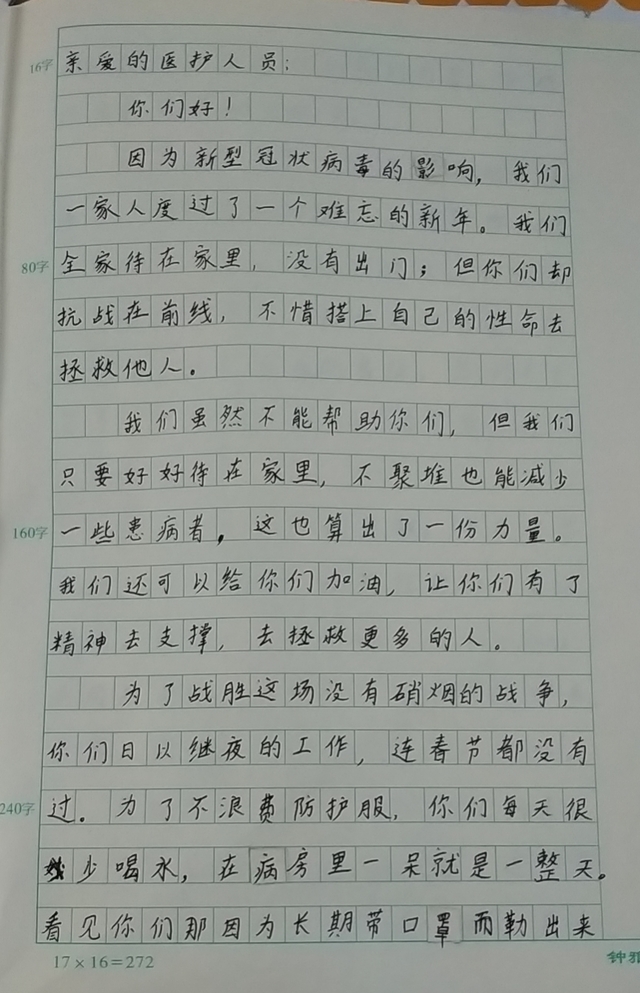 16字
亲爱的医护人员：
你们好！
因为新型冠状病毒的影响，我们
一家人度过了一个难忘的新年。我们
80字
全家待在家里，没有出门；但你们却
抗战在前线，不惜搭上自己的性命去
拯救他人。
我们虽然不能帮助你们，但我们
只要好好待在家里，不聚堆也能减少
160字
一些患病者，这也算出了一份力量。
我们还可以给你们加油，让你们有了
精神去支撑，去拯救更多的人。
为了战胜这场没有硝烟的战争，
你们日以继夜的工作，连春节都没有
240字
过。为了不浪费防护服，你们每天很
少喝水，在病房里一呆就是一整天。
看见你们那因为长期带口罩而勒出来
17×16=272
钟雅